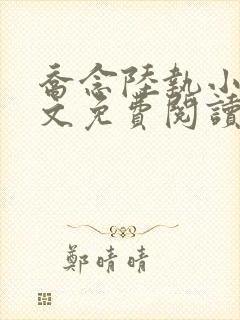 喬念陸執小
文免費閱讀
鄭晴晴